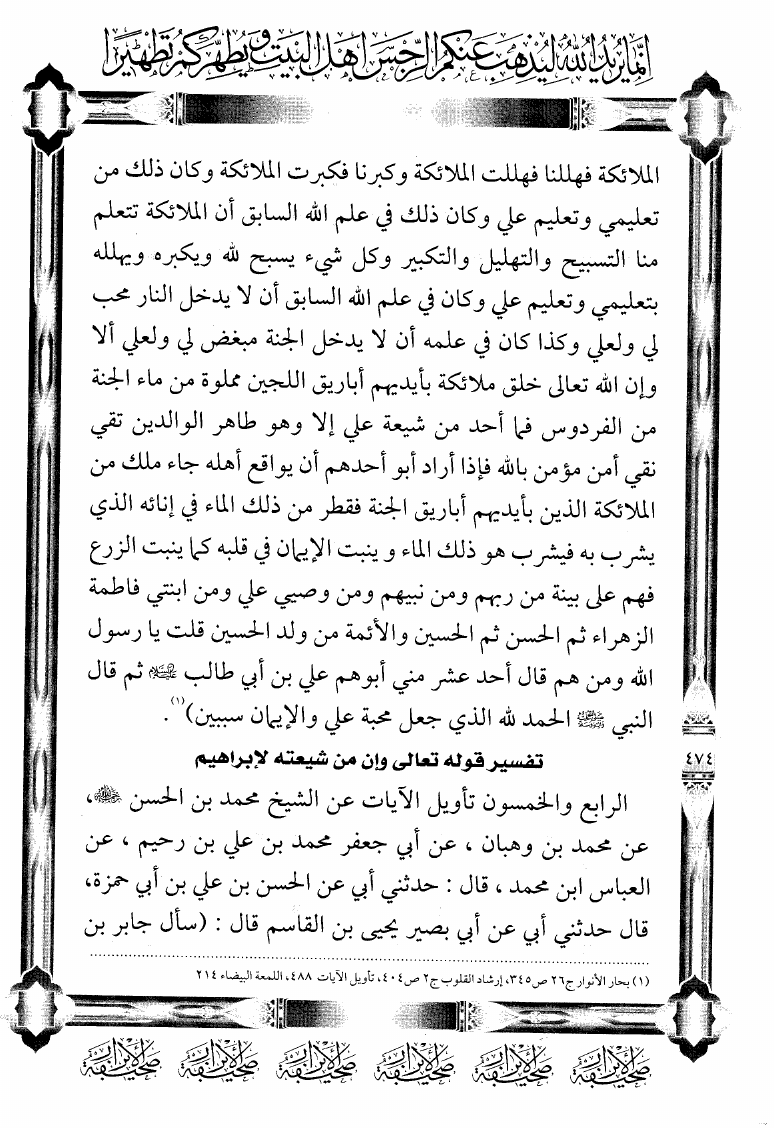 إنما يريد الله ليذهب عنكم الرجس أهل البيت ويطهركم تطهيرا
الملائكة فهللنا فهللت الملائكة وكبرنا فكبرت الملائكة وكان ذلك من
تعليمي وتعليم علي وكان ذلك في علم الله السابق أن الملائكة تتعلم
منا التسبيح والتهليل والتكبير وكل شيء يسبح لله ويكبره ويهلله
بتعليمي وتعليم علي وكان في علم الله السابق أن لا يدخل النار محب
لي ولعلي وكذا كان في علمه أن لا يدخل الجنة مبغض لي ولعلي ألا
وإن الله تعالى خلق ملائكة بأيديهم أباريق اللجين مملوة من ماء الجنة
من الفردوس فما أحد من شيعة علي إلا وهو طاهر الوالدين تقي
نقي أمن مؤمن بالله فإذا أراد أبو أحدهم أن يواقع أهله جاء ملك من
الملائكة الذين بأيديهم أباريق الجنة فقطر من ذلك الماء في إنائه الذي
يشرب به فيشرب هو ذلك الماء و ينبت الإيمان في قلبه كما ينبت الزرع
فهم على بينة من ربهم ومن نبيهم ومن وصيي علي ومن ابنتي فاطمة
الزهراء ثم الحسن ثم الحسين والأئمة من ولد الحسين قلت يا رسول
الله ومن هم قال أحد عشر مني أبوهم علي بن أبي طالب عليه السلام ثم قال
النبي ﷺ الحمد لله الذي جعل محبة علي والإيمان سببين)(١).
تفسير قوله تعالى وإن من شيعته لإبراهيم
٤٧٤
الرابع والخمسون تأويل الآيات عن الشيخ محمد بن الحسن ،
عن محمد بن وهبان ، عن أبي جعفر محمد بن علي بن رحيم ، عن
العباس ابن محمد ، قال : حدثني أبي عن الحسن بن علي بن أبي حمزة،
قال حدثني أبي عن أبي بصير يحيى بن القاسم قال : (سأل جابر بن
(١) بحار الأنوار ج٢٦ ص٣٤٥، إرشاد القلوب ج٢ ص٤٠٤، تأويل الآيات ٤٨٨، اللمعة البيضاء ٢١٤
صحيفة الأبرار صحيفة الأبرار صحيفة الأبرار صحيفة الأبرار صحيفة الأبرار صحيفة الأبرار